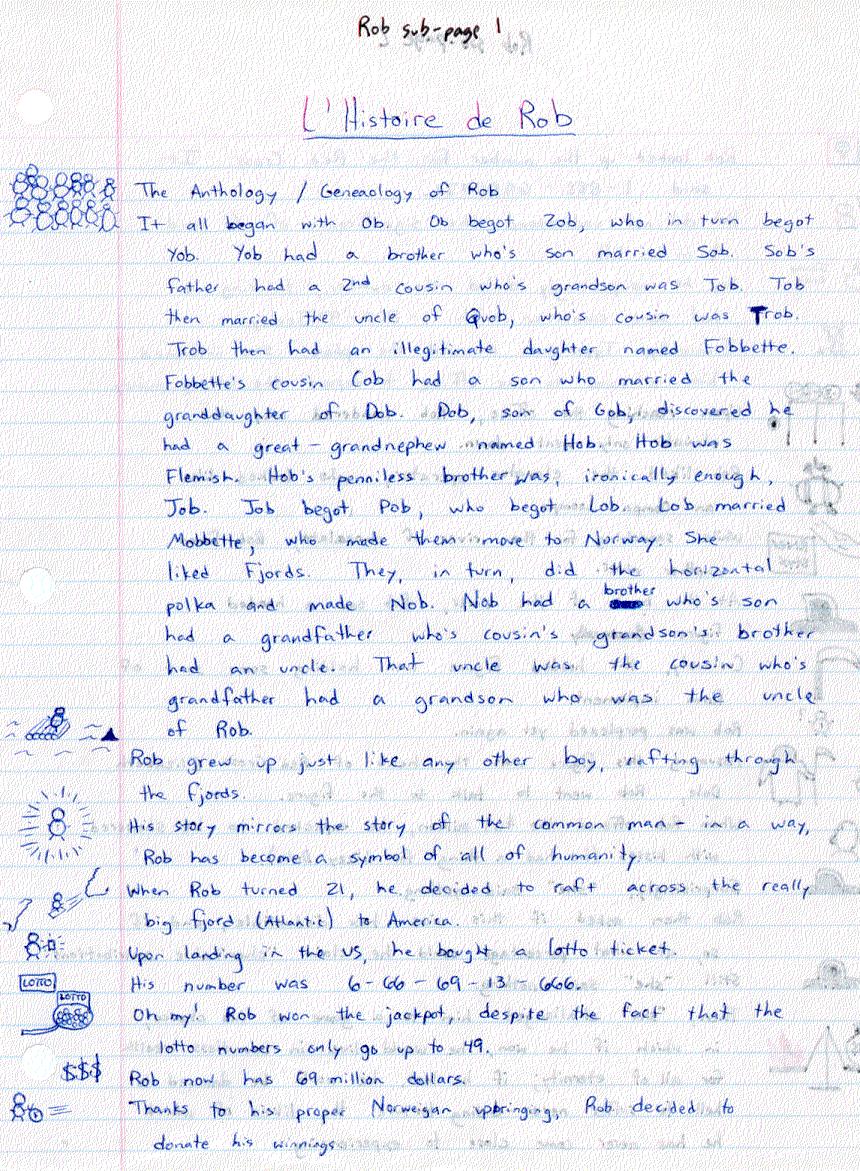 Rob sub-page 1
L'Histoire de Rob
The Anthology / Geneaology of Rob
It all began with Ob. Ob begot Zob, who in turn begot
Yob. Yob had a brother who's son married Sob. Sob's
father had a 2nd cousin who's grandson was Tob. Tob
then married the uncle of Quob, who's cousin was Trob.
Trob then had an illegitimate daughter named Fobbette.
Fobbette's cousin Cob had a son who married the
granddaughter of Dob. Dob, son of Gob, discovered he
had a great-grandnephew named Hob. Hob was
Flemish. Hob's penniless brother was, ironically enough,
Job. Job begot Pob, who begot Lob. Lob married
Mobbette, who made them move to Norway. She
liked Fjords. They, in turn, did the horizontal
polka and made Nob. Nob had a brother who's son
had a grandfather who's cousin's grandson's brother
had an uncle. That uncle was the cousin who's
grandfather had a grandson who was the uncle
of Rob.
Rob grew up just like any other boy, rafting through
the fjords.
His story mirrors the story of the common man - in a way,
Rob has become a symbol of all of humanity
When Rob turned 21, he decided to raft across the really
big fjord (Atlantic) to America.
Upon landing in the US, he bought a lotto ticket.
LOTTO
His number was 6-66-69-13-666.
LOTTO
Oh my! Rob won the jackpot, despite the fact that the
lotto numbers only go up to 49.
$$$
Rob now has 69 million dollars.
Thanks to his proper Norweigan upbringing, Rob decided to
donate his winnings